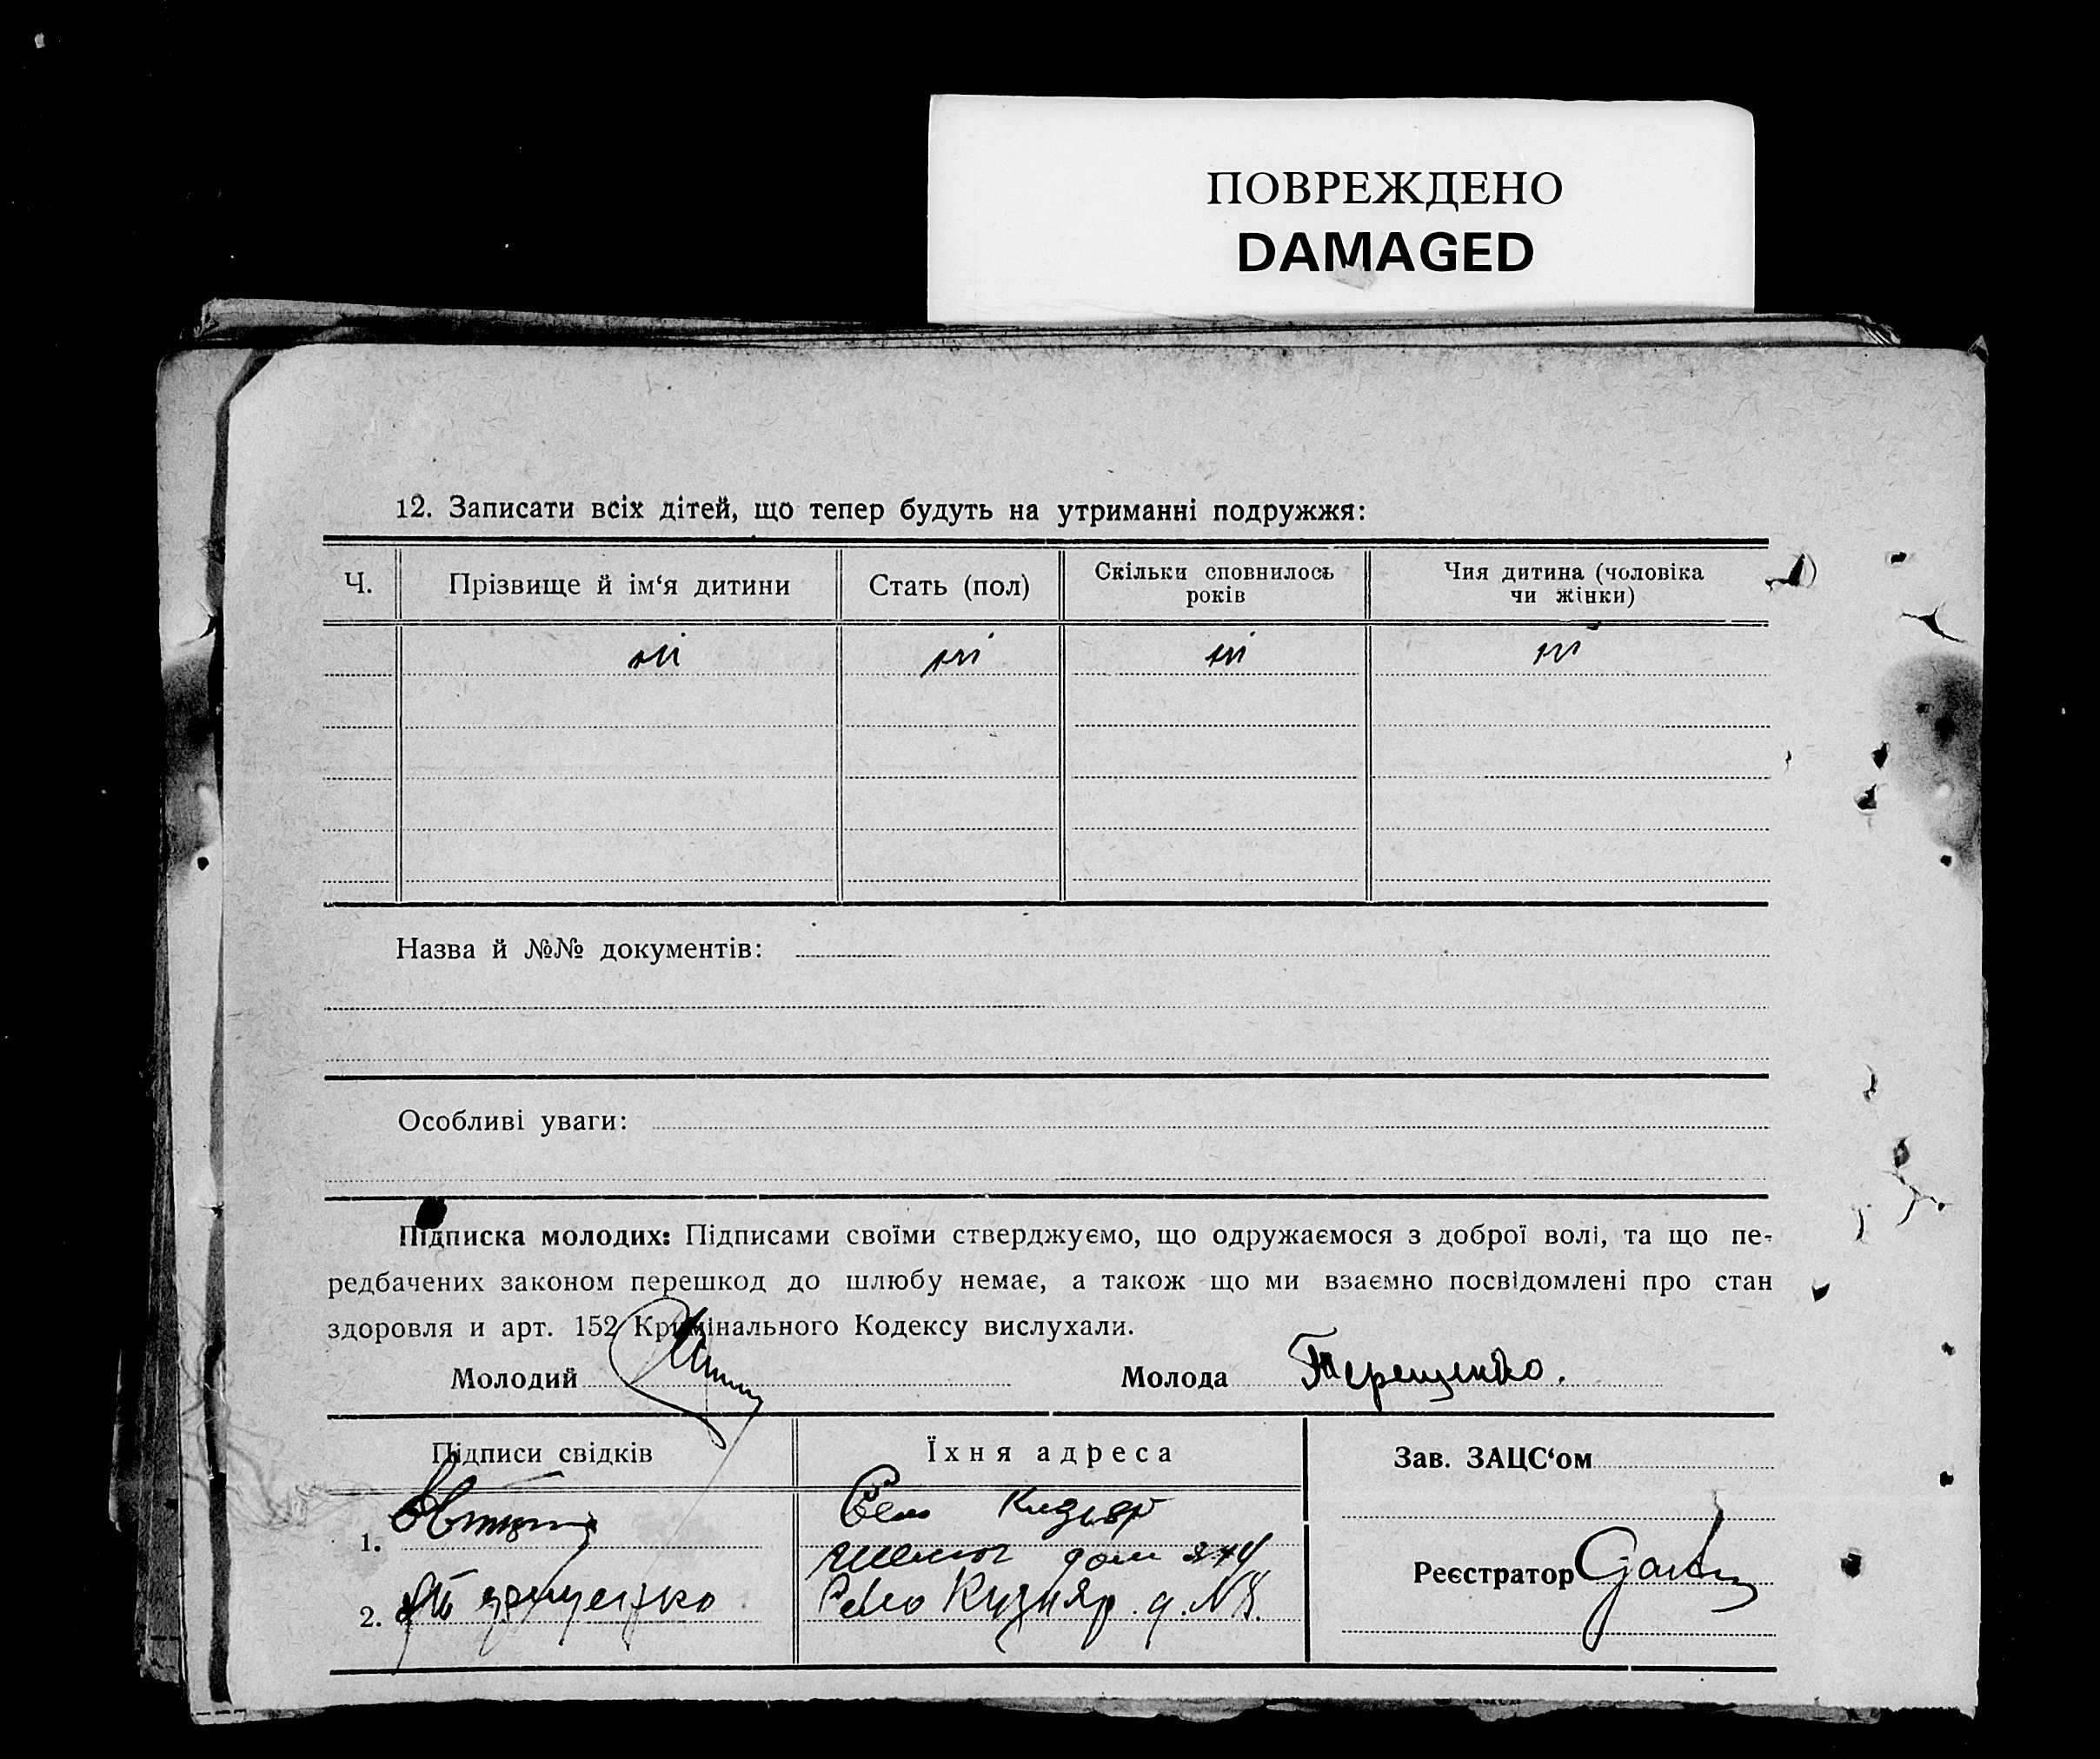 ПОВРЕЖДЕНО
DAMAGED
12. Записати всіх дітей, що тепер будуть на утриманні подружжя:
Ч. Прізвище й ім‘я дитини Стать (пол) Скільки сповнилось років Чия дитина (чоловіка чи жінки)
ні ні ні ні
Назва й №№ документів:
Особливі уваги:
Підписка молодих: Підписами своїми стверджуємо, що одружаємося з доброї волі, та що пе-
редбачених законом перешкод до шлюбу немає, а також що ми взаємно посвідомлені про стан
здоровля и арт. 152 Кримінального Кодексу вислухали.
Молодий Молода Терещенко.
Підписи свідків Їхня адреса Зав. ЗАЦС‘ом
1. Село
дом
Реєстратор
2. Терещенко Село